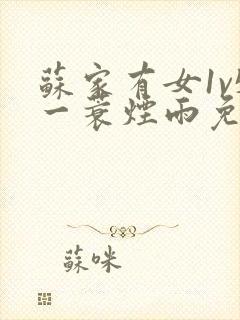 蘇家有女1v
一蓑煙雨免
蘇咪